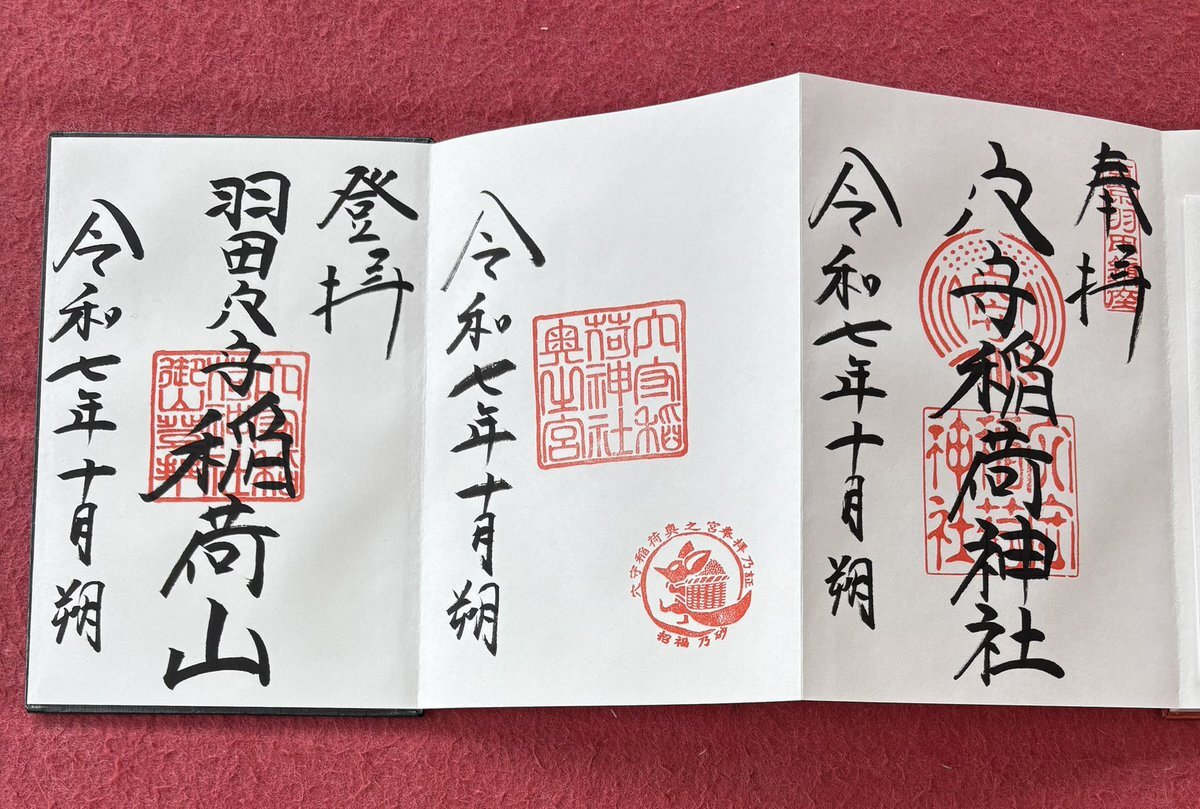 奉拝
穴守稲荷神社
令和七年十月朔
穴守稲荷神社
穴守稲荷神社奥之宮
穴守稲荷奥之宮奉拝乃証
招福乃砂
令和七年十月朔
登拝
羽田穴守稲荷山
穴守稲荷神社御山登拝
令和七年十月朔